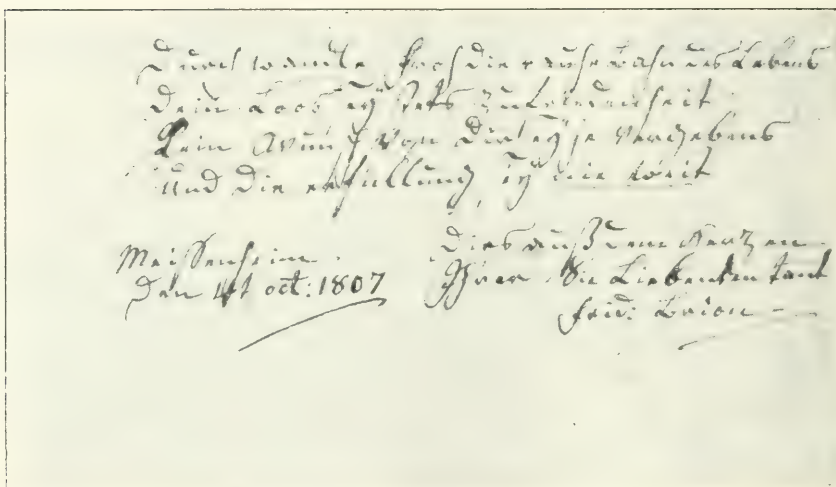 Durch wandle froh die rauhe bahn des Lebens
Dein Loos sey stets Zufriedenheit
Kein Wunsch von Dir sey je vergebens
Und die erfüllung sey nie weit
Meissenheim.
Den 4t oct: 1807
Dies auß dem Herzen
Ihrer Sie Liebenden tant
frid: Brion